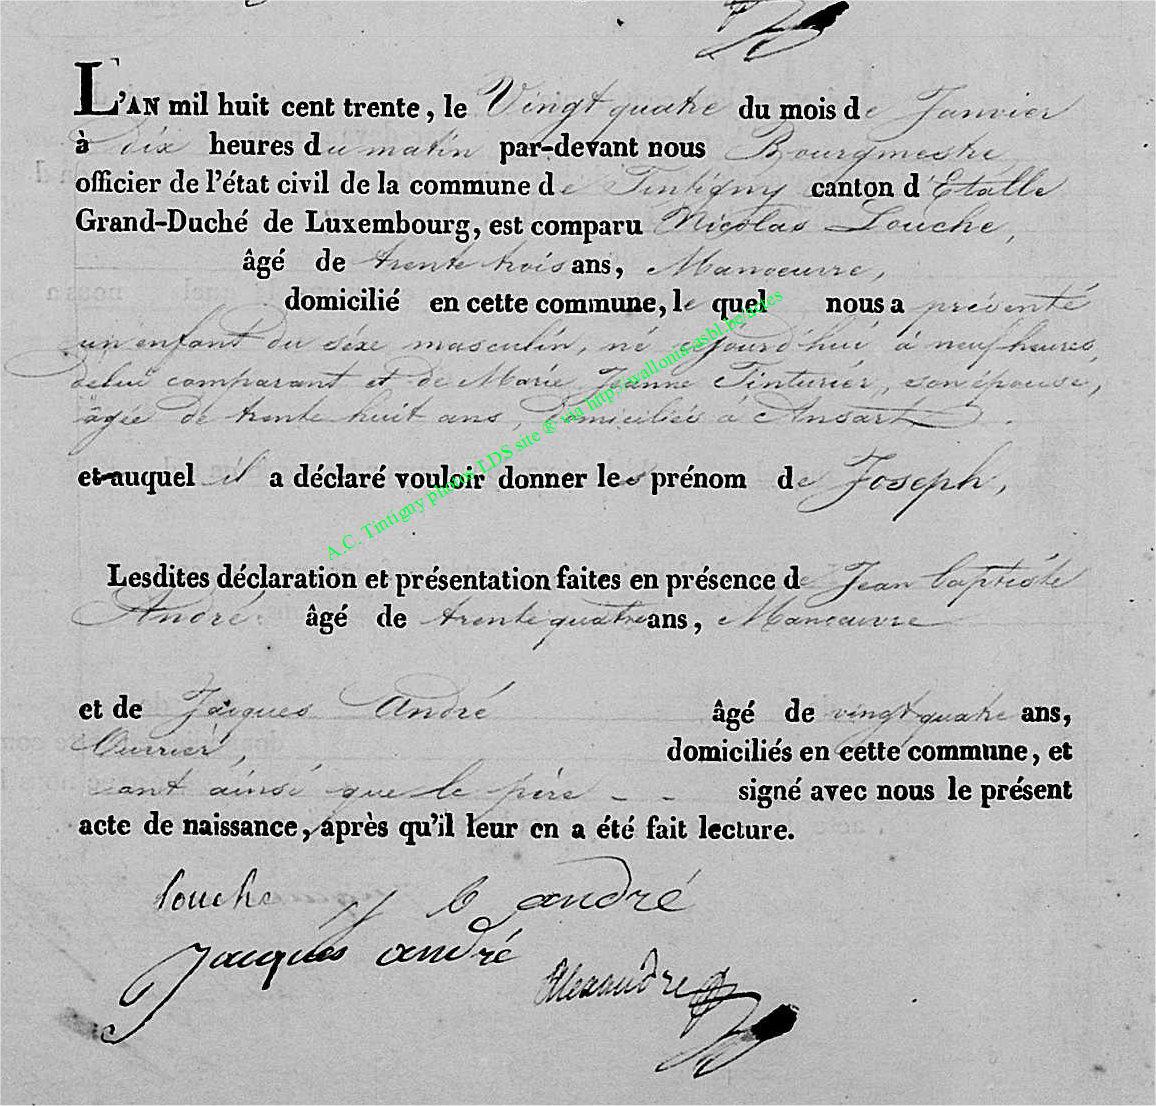 L'AN mil huit cent trente, le Vingt quatre du mois de Janvier
à dix heures du matin par-devant nous Bourgmestre
officier de l'état civil de la commune de Tintigny canton d'Etalle
Grand-Duché de Luxembourg, est comparu Nicolas Louche,
âgé de trente trois ans, Manoeuvre,
domicilié en cette commune, le quel nous a présenté
un enfant du séxe masculin, né cejourd'hui à neuf heures,
delui comparant et de Marie Jeanne Tinturier, son épouse,
agée de trente huit ans, domiciliés à Ansart.
et auquel il a déclaré vouloir donner les prénom de Joseph,
A.C. Tintigny photos LDS site ® via http://wallonia-asbl.be/actes
Lesdites déclaration et présentation faites en présence de Jean baptiste
André âgé de trente quatre ans, Manoeuvre
et de Jacques André âgé de vingt quatre ans,
Ouvrier, domiciliés en cette commune, et
ont ainsi que le père - - signé avec nous le présent
acte de naissance, après qu'il leur en a été fait lecture.
louche J b andré
Jacques andré
Alexandre